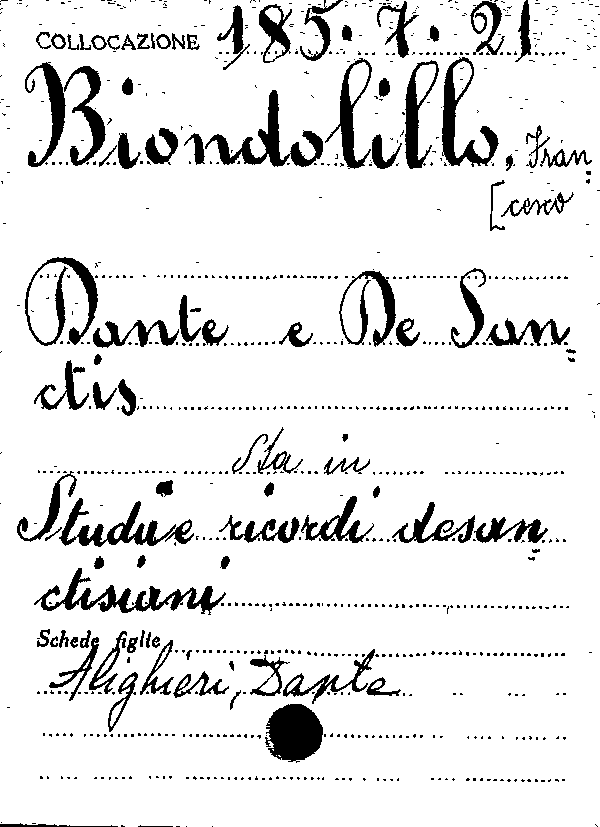 COLLOCAZIONE 185.7.21
Biondolillo, Fran=
[cesco
Dante e De San=
ctis
Sta in
Studi e ricordi desan=
ctisiani
Schede figlie
Alighieri, Dante